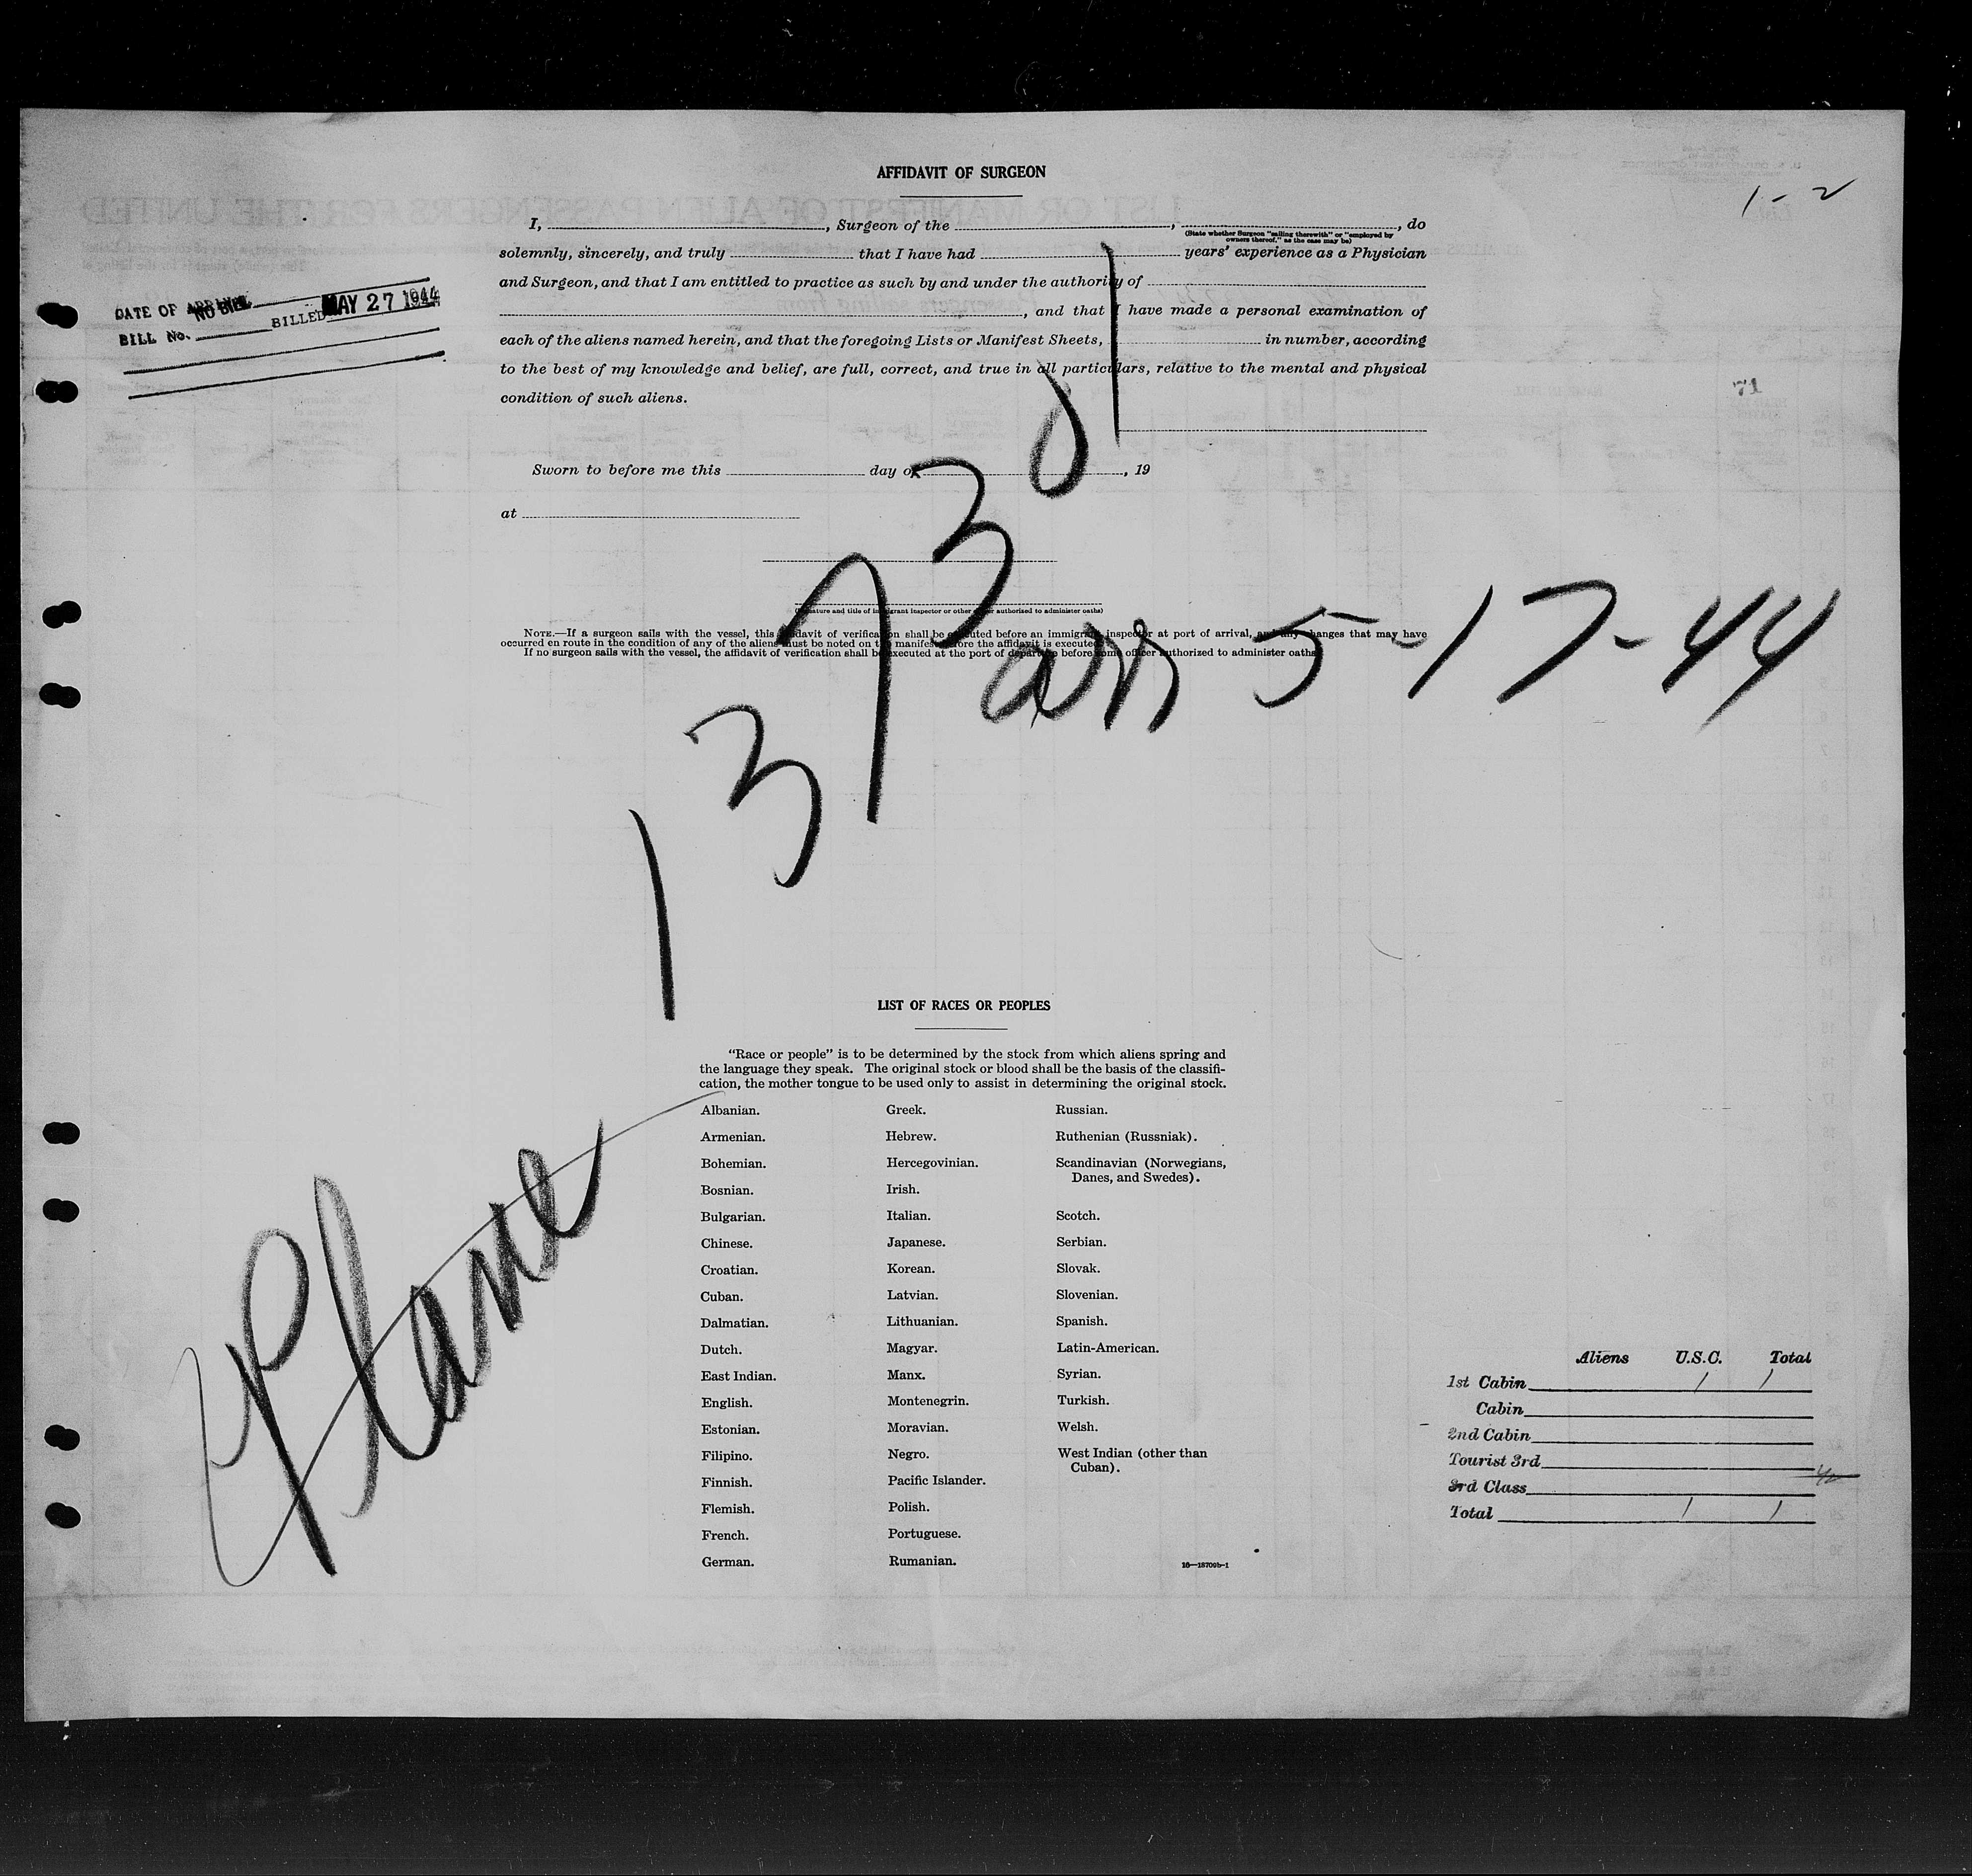 AFFIDAVIT OF SURGEON
1-2
I, , Surgeon of the , , do
(State whether Surgeon "sailing therewith" or "employed by
owners thereof," as the case may be)
solemnly, sincerely, and truly that I have had years' experience as a Physician
and Surgeon, and that I am entitled to practice as such by and under the authority of
, and that I have made a personal examination of
each of the aliens named herein, and that the foregoing Lists or Manifest Sheets, in number, according
to the best of my knowledge and belief, are full, correct, and true in all particulars, relative to the mental and physical
condition of such aliens.
DATE OF ARRIVAL
NO BILL
MAY 27 1944
BILL No. BILLED
71
Sworn to before me this day of , 19
at
(Signature and title of immigrant inspector or other officer authorized to administer oaths)
NOTE.—If a surgeon sails with the vessel, this affidavit of verification shall be executed before an immigrant inspector at port of arrival, and any changes that may have
occurred en route in the condition of any of the aliens must be noted on the manifest before the affidavit is executed.
If no surgeon sails with the vessel, the affidavit of verification shall be executed at the port of departure before some officer authorized to administer oaths.
137301
arr 5-17-44
LIST OF RACES OR PEOPLES
"Race or people" is to be determined by the stock from which aliens spring and
the language they speak. The original stock or blood shall be the basis of the classifi-
cation, the mother tongue to be used only to assist in determining the original stock.
Albanian. Greek. Russian.
Armenian. Hebrew. Ruthenian (Russniak).
Bohemian. Hercegovinian. Scandinavian (Norwegians,
Danes, and Swedes).
Bosnian. Irish.
Bulgarian. Italian. Scotch.
Chinese. Japanese. Serbian.
Croatian. Korean. Slovak.
Cuban. Latvian. Slovenian.
Dalmatian. Lithuanian. Spanish.
Dutch. Magyar. Latin-American.
East Indian. Manx. Syrian.
English. Montenegrin. Turkish.
Estonian. Moravian. Welsh.
Filipino. Negro. West Indian (other than
Cuban).
Finnish. Pacific Islander.
Flemish. Polish.
French. Portuguese.
German. Rumanian.
16—18700b-1
Plane
Aliens U.S.C. Total
1st Cabin 1 1
Cabin
2nd Cabin
Tourist 3rd
3rd Class
Total 1 1